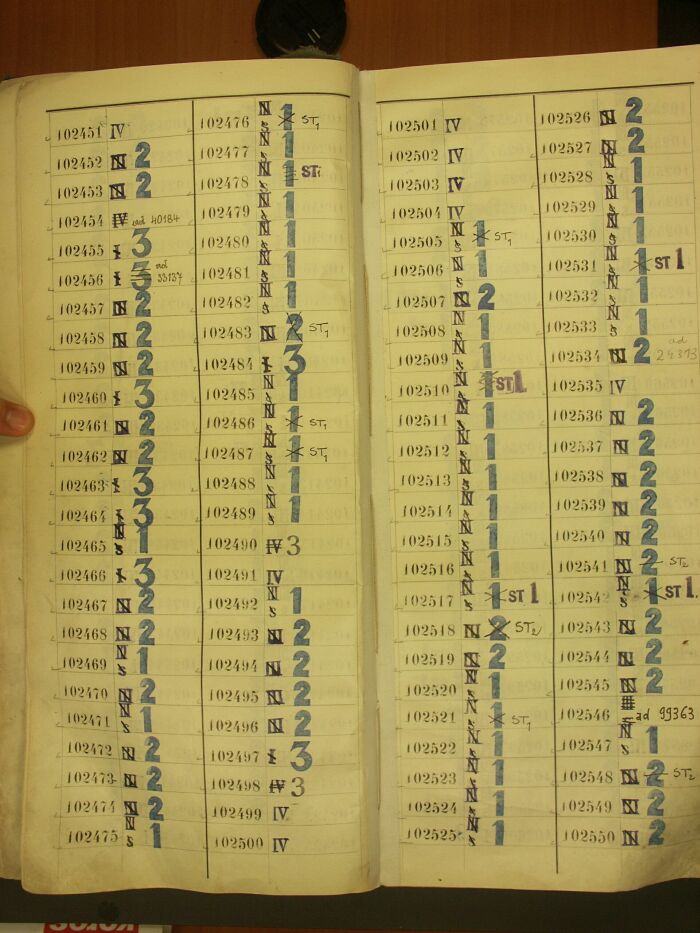 102451 IV
102452 N 2
102453 N 2
102454 IV ad 40184
102455 I 3
102456 I 3 ad 33137
102457 N 2
102458 N 2
102459 N 2
102460 I 3
102461 N 2
102462 N 2
102463 I 3
102464 I 3
102465 N s 1
102466 I 3
102467 N 2
102468 N 2
102469 N s 1
102470 N 2
102471 N s 1
102472 N 2
102473 N 2
102474 N 2
102475 N s 1
102476 N s 1 ST1
102477 N s 1
102478 N s 1 ST1
102479 N s 1
102480 N s 1
102481 N s 1
102482 N s 1
102483 N 2 ST1
102484 I 3
102485 N s 1
102486 N s 1 ST1
102487 N s 1 ST1
102488 N s 1
102489 N s 1
102490 IV 3
102491 IV
102492 N s 1
102493 N 2
102494 N 2
102495 N 2
102496 N 2
102497 I 3
102498 IV 3
102499 IV
102500 IV
102501 IV
102502 IV
102503 IV
102504 IV
102505 N s 1 ST1
102506 N s 1
102507 N 2
102508 N s 1
102509 N s 1
102510 N s 1 ST1
102511 N s 1
102512 N s 1
102513 N s 1
102514 N s 1
102515 N s 1
102516 N s 1
102517 N s 1 ST1
102518 N 2 ST2
102519 N 2
102520 N s 1
102521 N s 1 ST1
102522 N s 1
102523 N s 1
102524 N s 1
102525 N s 1
102526 N 2
102527 N 2
102528 N s 1
102529 N s 1
102530 N s 1
102531 N s 1 ST1
102532 N s 1
102533 N s 1
102534 N 2 ad 24313
102535 IV
102536 N 2
102537 N 2
102538 N 2
102539 N 2
102540 N 2
102541 N 2 ST2
102542 N s 1 ST1.
102543 N 2
102544 N 2
102545 N 2
102546 ad 99363
102547 N s 1
102548 N 2 ST2
102549 N 2
102550 N 2